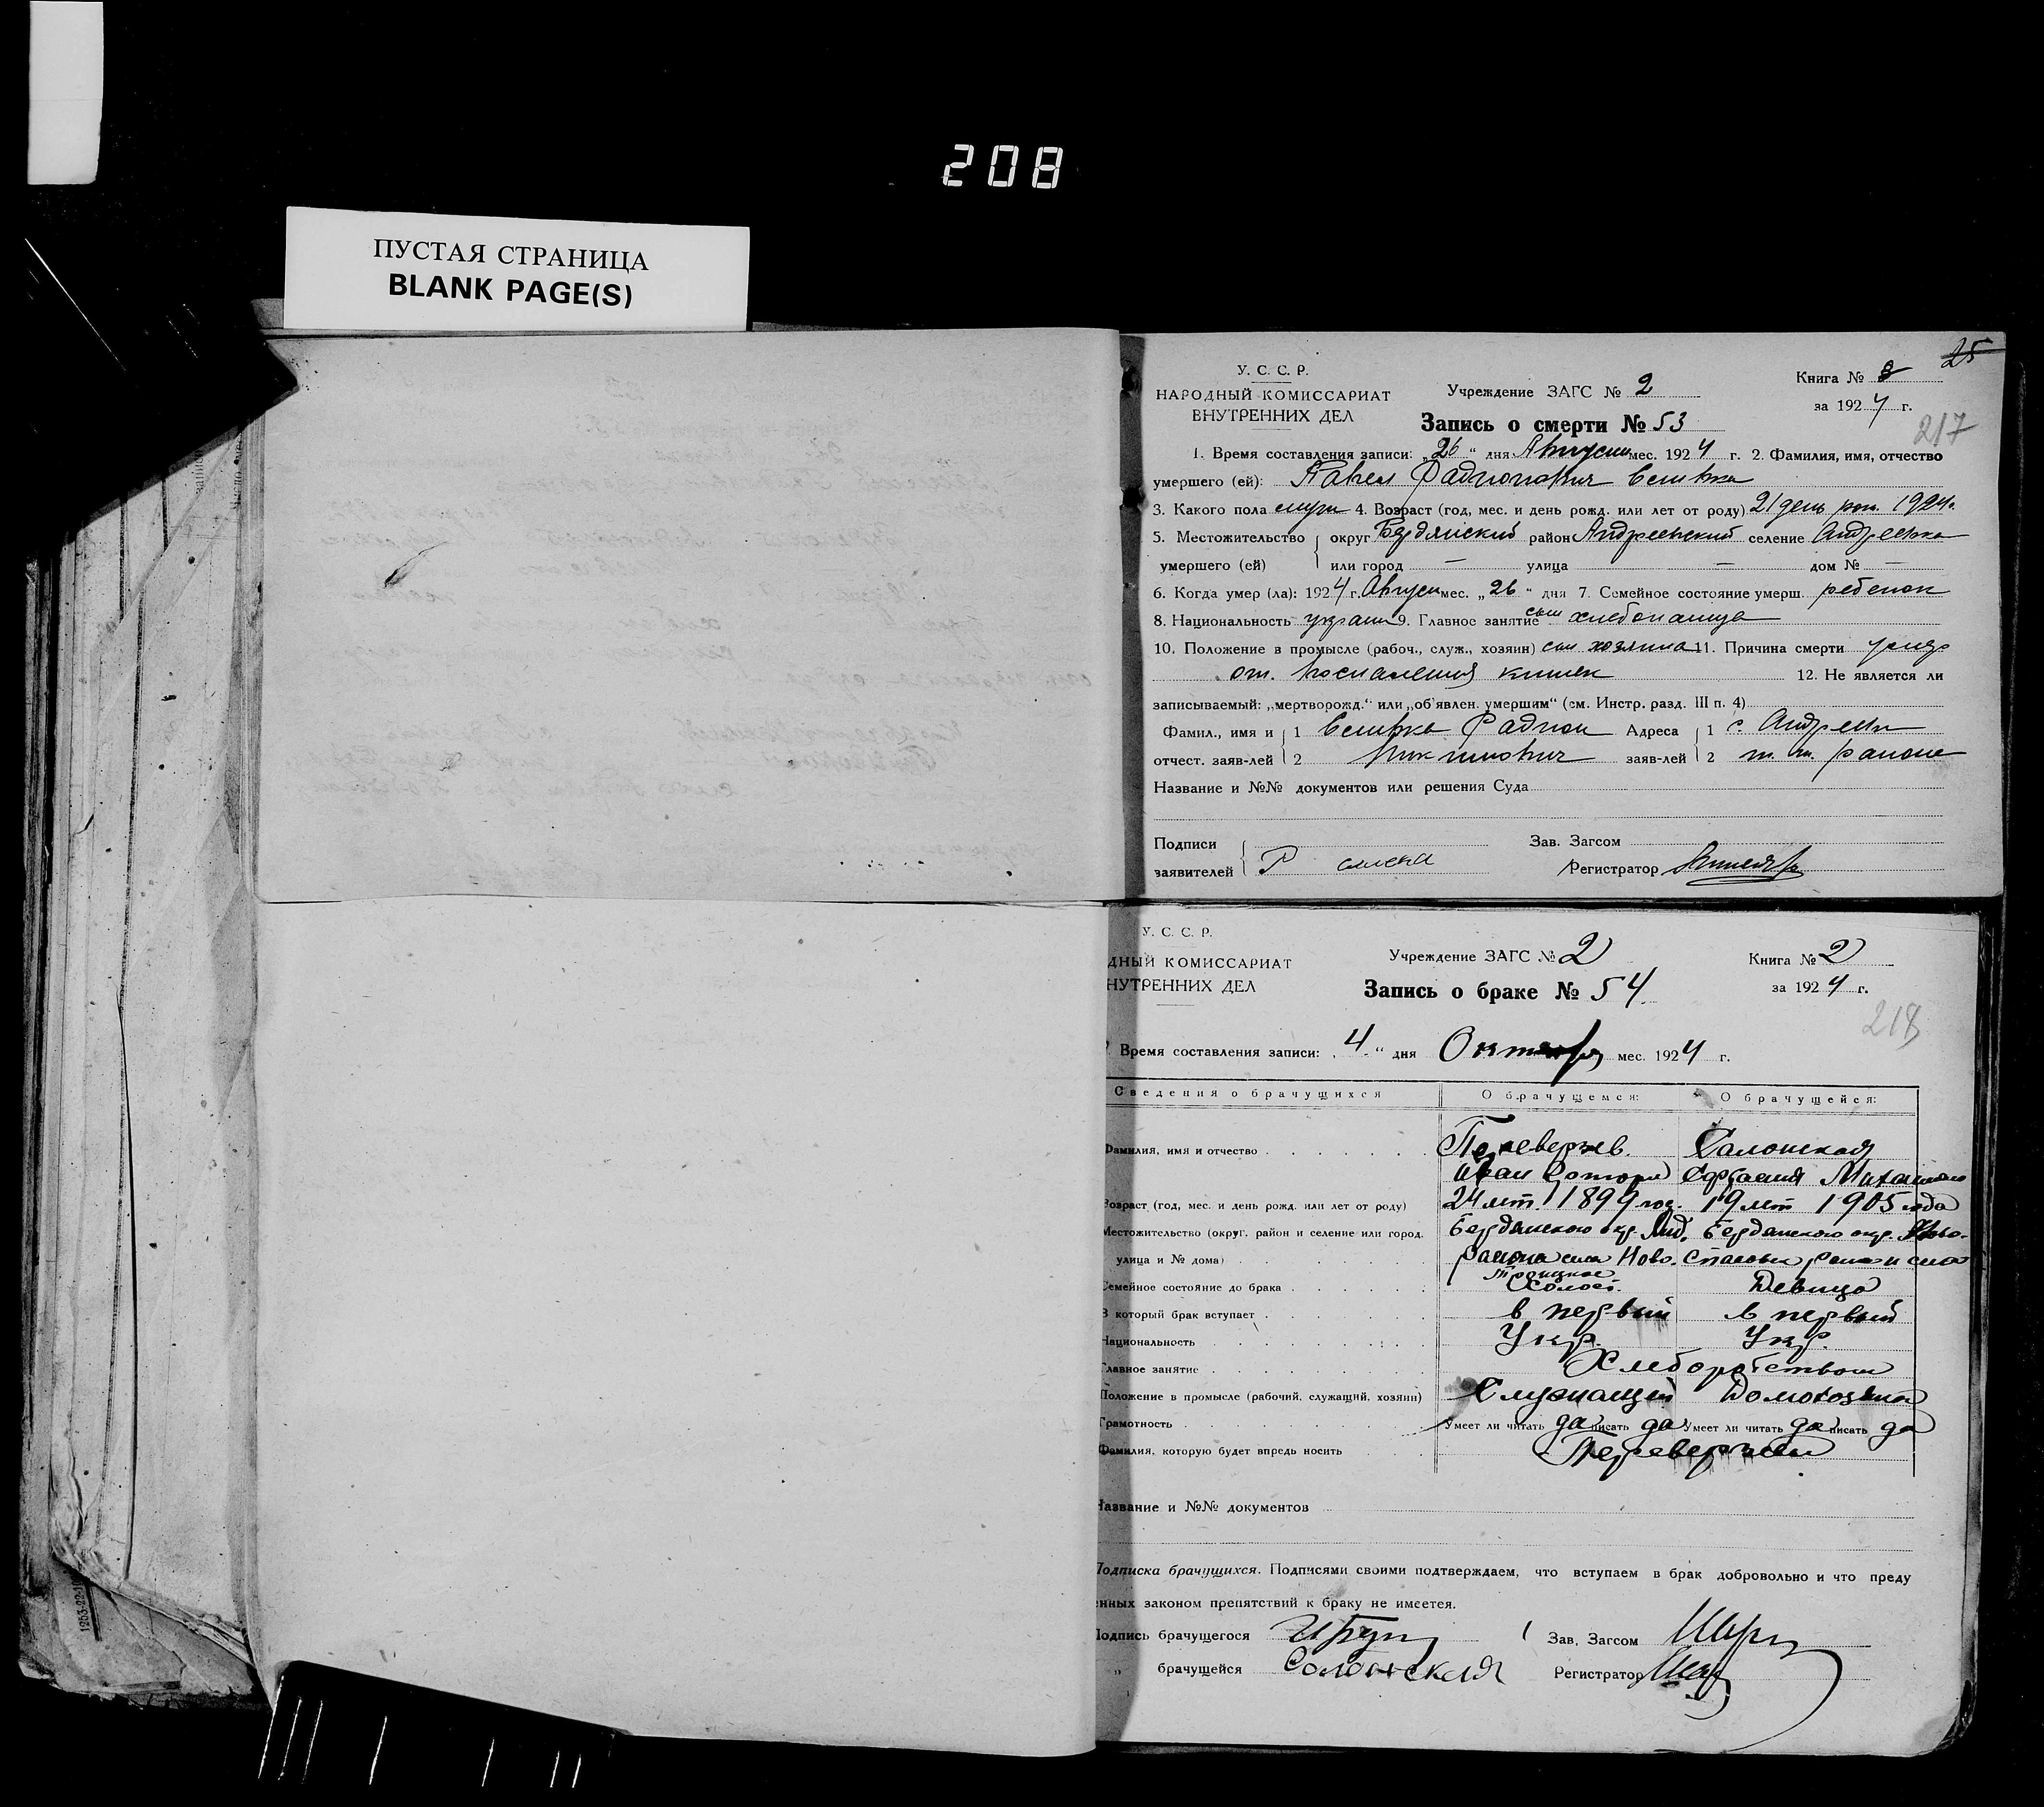 208
ПУСТАЯ СТРАНИЦА
BLANK PAGE(S)
25
У. С. С. Р.
НАРОДНЫЙ КОМИССАРИАТ
ВНУТРЕННИХ ДЕЛ
Учреждение ЗАГС № 2
Книга № 3
за 1924 г.
Запись о смерти № 53
217
1. Время составления записи: „26“ дня Августа мес. 1924 г. 2. Фамилия, имя, отчество
умершего (ей): Павел Радионович
3. Какого пола муж 4. Возраст (год, мес. и день рожд. или лет от роду) 21 день рож. 1924г.
5. Местожительство округ Бердянский район Андреевский селение Андреевка
умершего (ей) или город — улица — дом № —
6. Когда умер (ла): 1924 г. Август мес. „26“ дня 7. Семейное состояние умерш. ребенок
8. Национальность украин 9. Главное занятие сын хлебопашца
10. Положение в промысле (рабоч., служ., хозяин) сын хозяина 11. Причина смерти умер
от воспаления кишек 12. Не является ли
записываемый: „мертворожд.“ или „об'явлен. умершим“ (см. Инстр. разд. III п. 4)
Фамил., имя и 1 Радион Адреса 1 с. Андреевк
отчест. заяв-лей 2 заяв-лей 2 т. ж. района
Название и №№ документов или решения Суда
Подписи
заявителей
Зав. Загсом
Регистратор
У. С. С. Р.
ДНЫЙ КОМИССАРИАТ
НУТРЕННИХ ДЕЛ
Учреждение ЗАГС № 2
Книга № 2
за 1924 г.
Запись о браке № 54
218
Время составления записи: „4“ дня Октября мес. 1924 г.
Сведения о брачущихся О брачущемся: О брачущейся:
Фамилия, имя и отчество Переверзев. Салонская
Иван Ефросиния
Возраст (год, мес. и день рожд. или лет от роду) 24 лет 1899 год. 19 лет 1905 года
Местожительство (округ, район и селение или город, Бердянского окр. Анд. Бердянского окр. Ново-
улица и № дома) района села Ново- Спасовки района и села
Троицкое
Семейное состояние до брака Холост. Девица
В который брак вступает в первый в первый
Национальность Укр. Укр.
Главное занятие Хлеборобством
Положение в промысле (рабочий, служащий, хозяин) Служащий Домохозяйка
Грамотность Умеет ли читать да писать да Умеет ли читать да писать да
Фамилия, которую будет впредь носить Переверзевы
Название и №№ документов
Подписка брачущихся. Подписями своими подтверждаем, что вступаем в брак добровольно и что преду
енных законом препятствий к браку не имеется.
Подпись брачущегося
„ брачущейся Солонская
Зав. Загсом
Регистратор